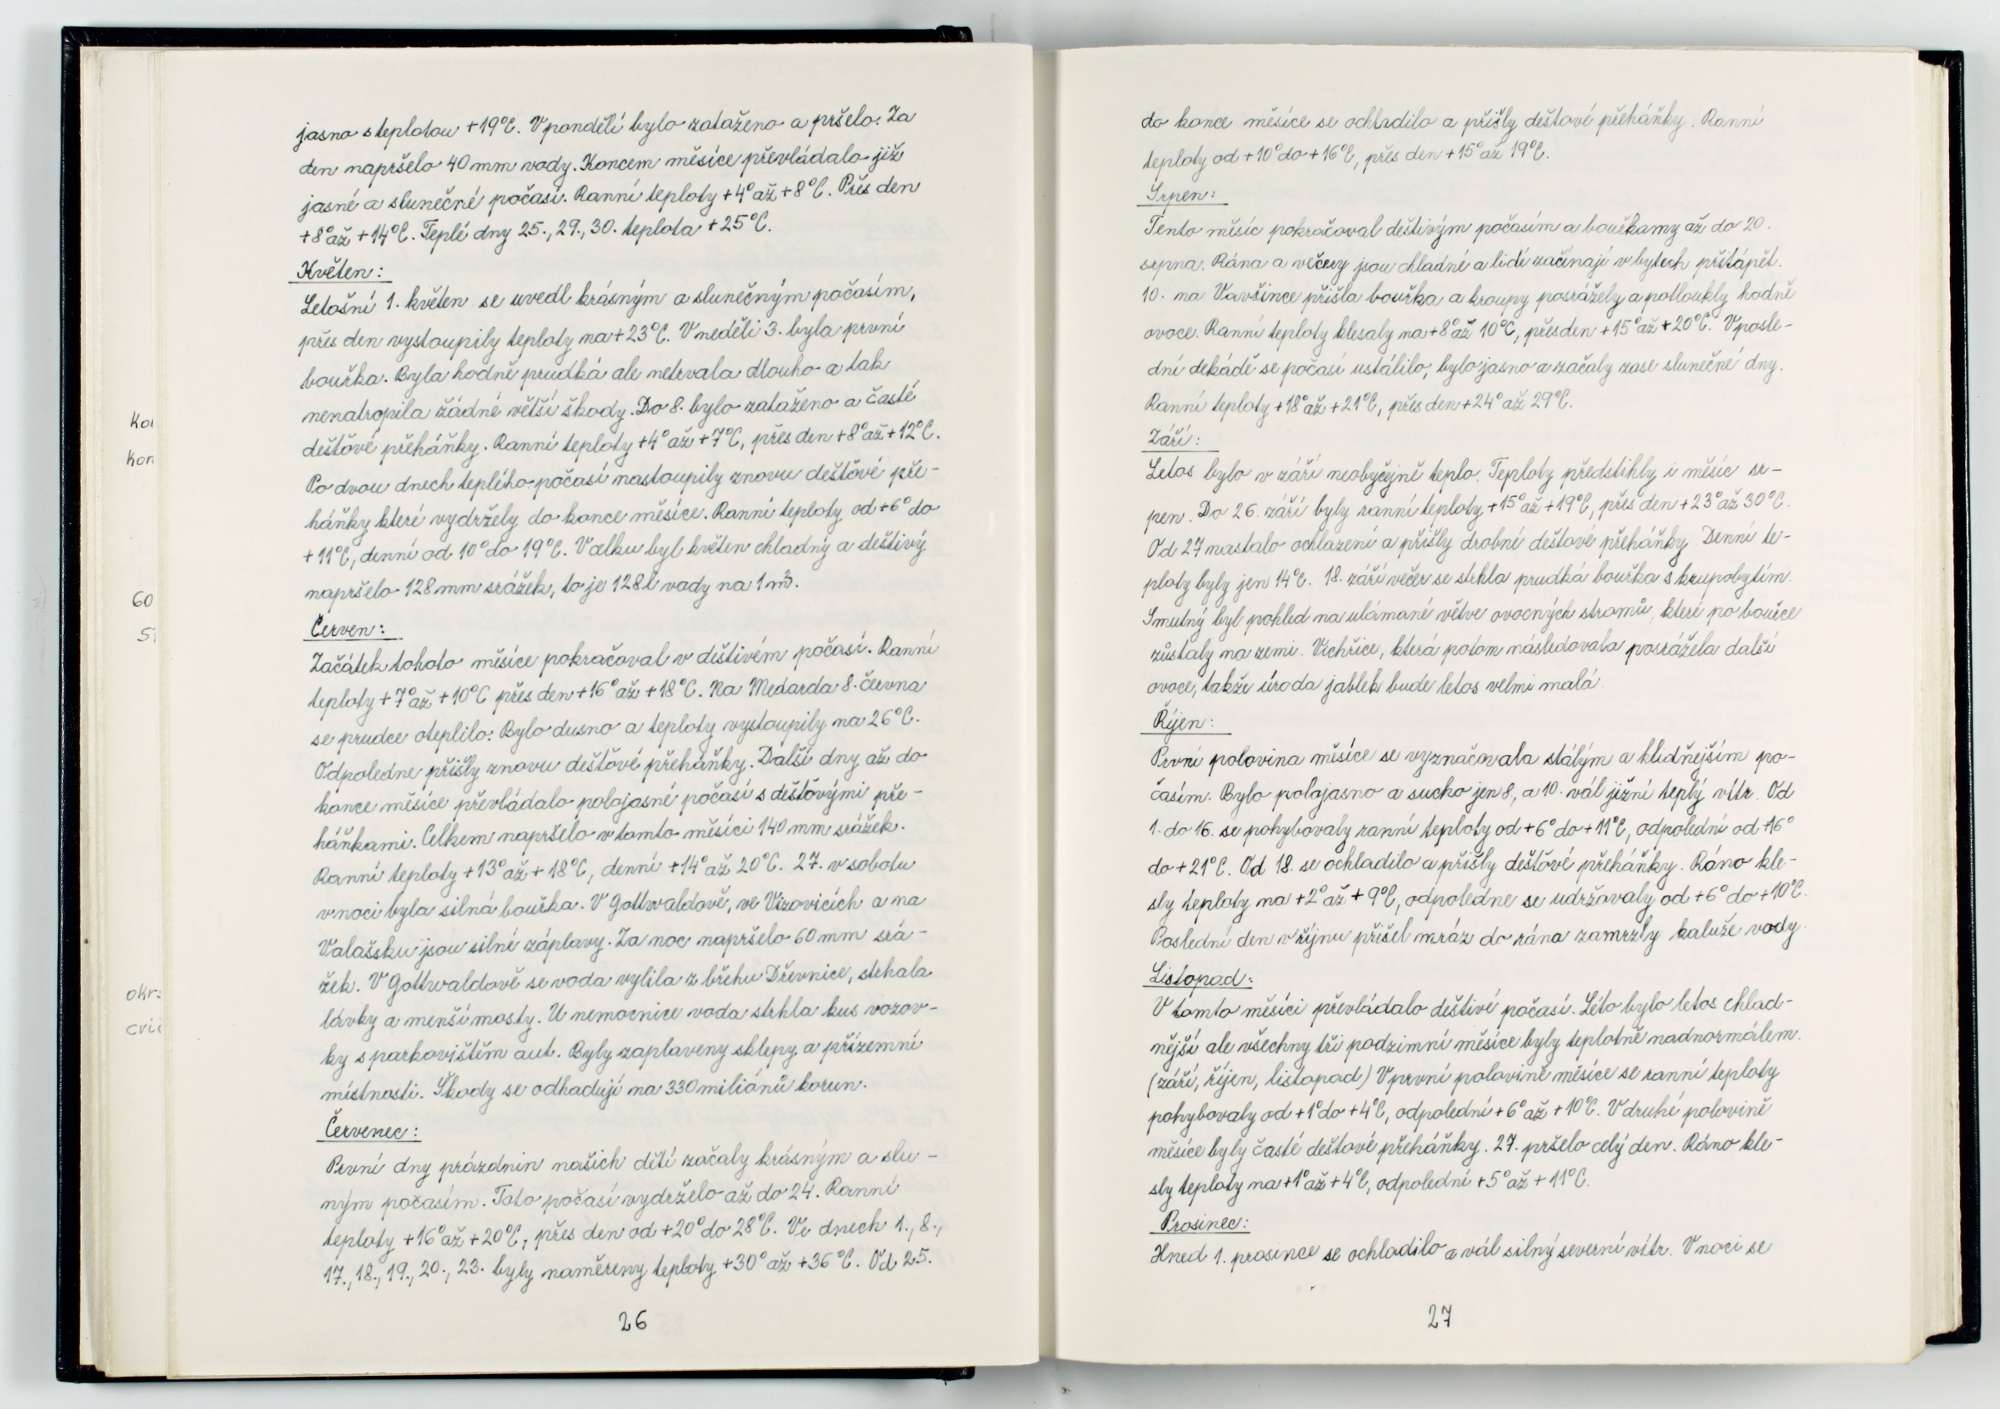 jasno s teplotou +19°C. V pondělí bylo zataženo a pršelo. Za
den napršelo 40 mm vody. Koncem měsíce převládalo již
jasné a slunečné počasí. Ranní teploty +4° až +8°C. Přes den
+8° až +14°C. Teplé dny 25., 29., 30. teplota +25°C.
Květen:
Letošní 1. květen se uvedl krásným a slunečným počasím,
přes den vystoupily teploty na +23°C. V neděli 3. byla první
bouřka. Byla hodně prudká ale netrvala dlouho a tak
nenatropila žádné větší škody. Do 8. bylo zataženo a časté
deštové přeháňky. Ranní teploty +4° až +7°C, přes den +8° až +12°C.
Po dvou dnech teplého počasí nastoupily znovu deštové pře-
háňky které vydržely do konce měsíce. Ranní teploty od +6° do
+11°C, denní od 10° do 19°C. Vcelku byl květen chladný a deštivý
napršelo 128 mm srážek, to je 128 l vody na 1 m².
Červen:
Začátek tohoto měsíce pokračoval v deštivém počasí. Ranní
teploty +7° až +10°C přes den +16° až +18°C. Na Medarda 8. června
se prudce oteplilo. Bylo dusno a teploty vystoupily na 26°C.
Odpoledne přišly znovu deštové přeháňky. Další dny až do
konce měsíce převládalo polojasné počasí s deštovými pře-
háňkami. Celkem napršelo v tomto měsíci 140 mm srážek.
Ranní teploty +13° až +18°C, denní +14° až 20°C. 27. v sobotu
v noci byla silná bouřka. V Gottwaldově, ve Vizovicích a na
Valašsku jsou silné záplavy. Za noc napršelo 60 mm srá-
žek. V Gottwaldově se voda vylila z břehu Dřevnice, strhala
lávky a menší mosty. U nemocnice voda strhla kus vozov-
ky s parkovištěm aut. Byly zaplaveny sklepy a přízemní
místnosti. Škody se odhadují na 330 miliónů korun.
Červenec:
První dny prázdnin našich dětí začaly krásným a slu-
ným počasím. Toto počasí vydrželo až do 24. Ranní
teploty +16° až +20°C, přes den od +20° do 28°C. Ve dnech 1., 8.,
17., 18., 19., 20., 23. byly naměřeny teploty +30° až +36°C. Od 25.
26
do konce měsíce se ochladilo a přišly deštové přeháňky. Ranní
teploty od +10° do +16°C, přes den +15° až 19°C.
Srpen:
Tento měsíc pokračoval deštivým počasím a bouřkamy až do 20.
srpna. Rána a večery jsou chladné a lidi začínají v bytech přitápět.
10. na Vavřince přišla bouřka a kroupy posrážely a potloukly hodně
ovoce. Ranní teploty klesaly na +8° až 10°C, přes den +15° až +20°C. V posle-
dní dekádě se počasí ustálilo, bylo jasno a začaly zase slunečné dny.
Ranní teploty +18° až +21°C, přes den +24° až 29°C.
Září:
Letos bylo v září neobyčejně teplo. Teploty předstihly i měsíc sr-
pen. Do 26. září byly ranní teploty +15° až +19°C, přes den +23° až 30°C.
Od 27 nastalo ochlazení a přišly drobné deštové přeháňky. Denní te-
ploty byly jen 14°C. 18. září večer se strhla prudká bouřka s krupobytím.
Smutný byl pohled na ulámané větve ovocných stromů, které po bouřce
zůstaly na zemi. Vichřice, která potom následovala posrážela další
ovoce, takže úroda jablek bude letos velmi malá.
Říjen:
První polovina měsíce se vyznačovala stálým a klidnějším po-
časím. Bylo polojasno a sucho jen 8, a 10. vál jižní teplý vítr. Od
1. do 16. se pohybovaly ranní teploty od +6° do +11°C, odpolední od +16°
do +21°C. Od 18. se ochladilo a přišly deštové přeháňky. Ráno kle-
sly teploty na +2° až +9°C, odpoledne se udržovaly od +6° do +10°C.
Poslední den v říjnu přišel mráz do rána zamrzly kaluže vody.
Listopad:
V tomto měsíci převládalo deštivé počasí. Léto bylo letos chlad-
nější ale všechny tři podzimní měsíce byly teplotně nadnormálem.
(září, říjen, listopad) V první polovině měsíce se ranní teploty
pohybovaly od +1° do +4°C, odpolední +6° až +10°C. V druhé polovině
měsíce byly časté deštové přeháňky. 27. pršelo celý den. Ráno kle-
sly teploty na +1° až +4°C, odpolední +5° až +11°C.
Prosinec:
Hned 1. prosince se ochladilo a vál silný severní vítr. V noci se
27